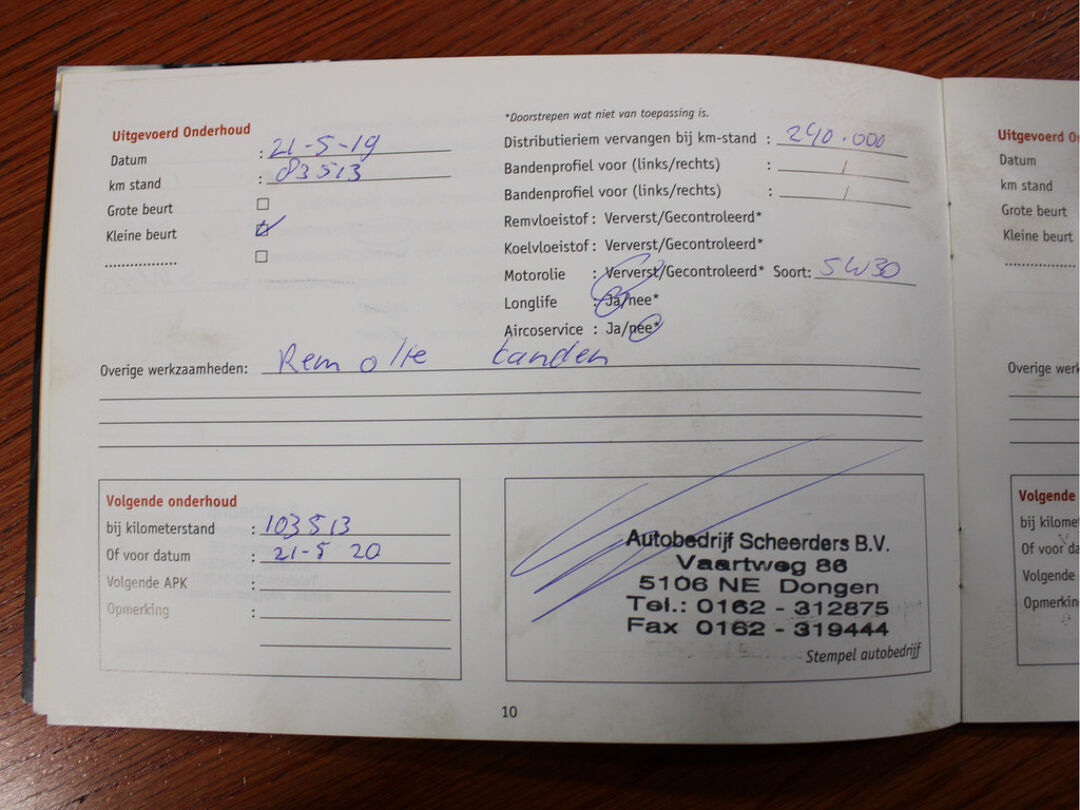 Uitgevoerd Onderhoud
Datum : 21-5-19
km stand : 83513
Grote beurt
Kleine beurt
..................
*Doorstrepen wat niet van toepassing is.
Distributieriem vervangen bij km-stand : 240.000
Bandenprofiel voor (links/rechts) : /
Bandenprofiel voor (links/rechts) : /
Remvloeistof : Ververst/Gecontroleerd*
Koelvloeistof : Ververst/Gecontroleerd*
Motorolie : Ververst/Gecontroleerd* Soort: 5W30
Longlife : Ja/nee*
Aircoservice : Ja/nee*
Overige werkzaamheden: Rem olie banden
Volgende onderhoud
bij kilometerstand : 103513
Of voor datum : 21-5 20
Volgende APK :
Opmerking :
Autobedrijf Scheerders B.V.
Vaartweg 86
5106 NE Dongen
Tel.: 0162 - 312875
Fax 0162 - 319444
Stempel autobedrijf
10
Uitgevoerd On
Datum
km stand
Grote beurt
Kleine beurt
..................
Overige werk
Volgende
bij kilomet
Of voor da
Volgende
Opmerkin